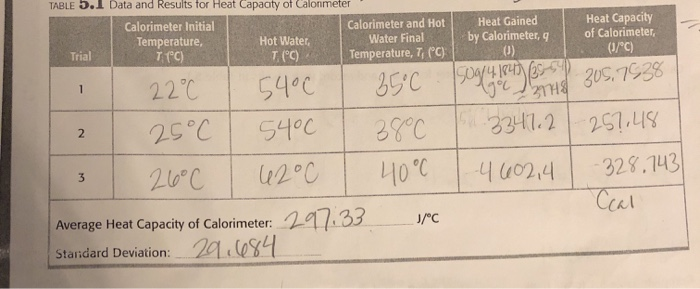 TABLE 5.1 Data and Results for Heat Capacity of Calorimeter
Trial | Calorimeter Initial Temperature, Tᵢ (°C) | Hot Water, Tᵢ (°C) | Calorimeter and Hot Water Final Temperature, T_f (°C) | Heat Gained by Calorimeter, q (J) | Heat Capacity of Calorimeter, (J/°C)
1 | 22°C | 54°C | 35°C | 50g(4.184J/g°C)(35-54) = 3974.8 | 305.7538
2 | 25°C | 54°C | 38°C | 3347.2 | 257.48
3 | 26°C | 62°C | 40°C | -4602.4 | -328.743
Ccal
Average Heat Capacity of Calorimeter: 297.33 J/°C
Standard Deviation: 29.684